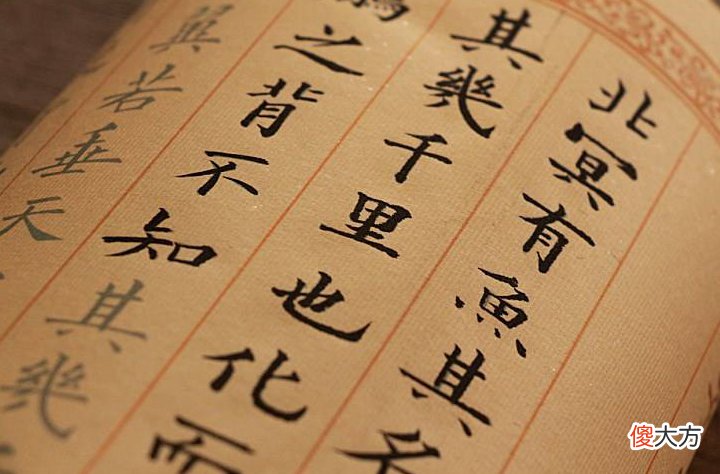 北冥有魚其名
其幾千里也化而
之背不知其幾
翼若垂天
傻大方